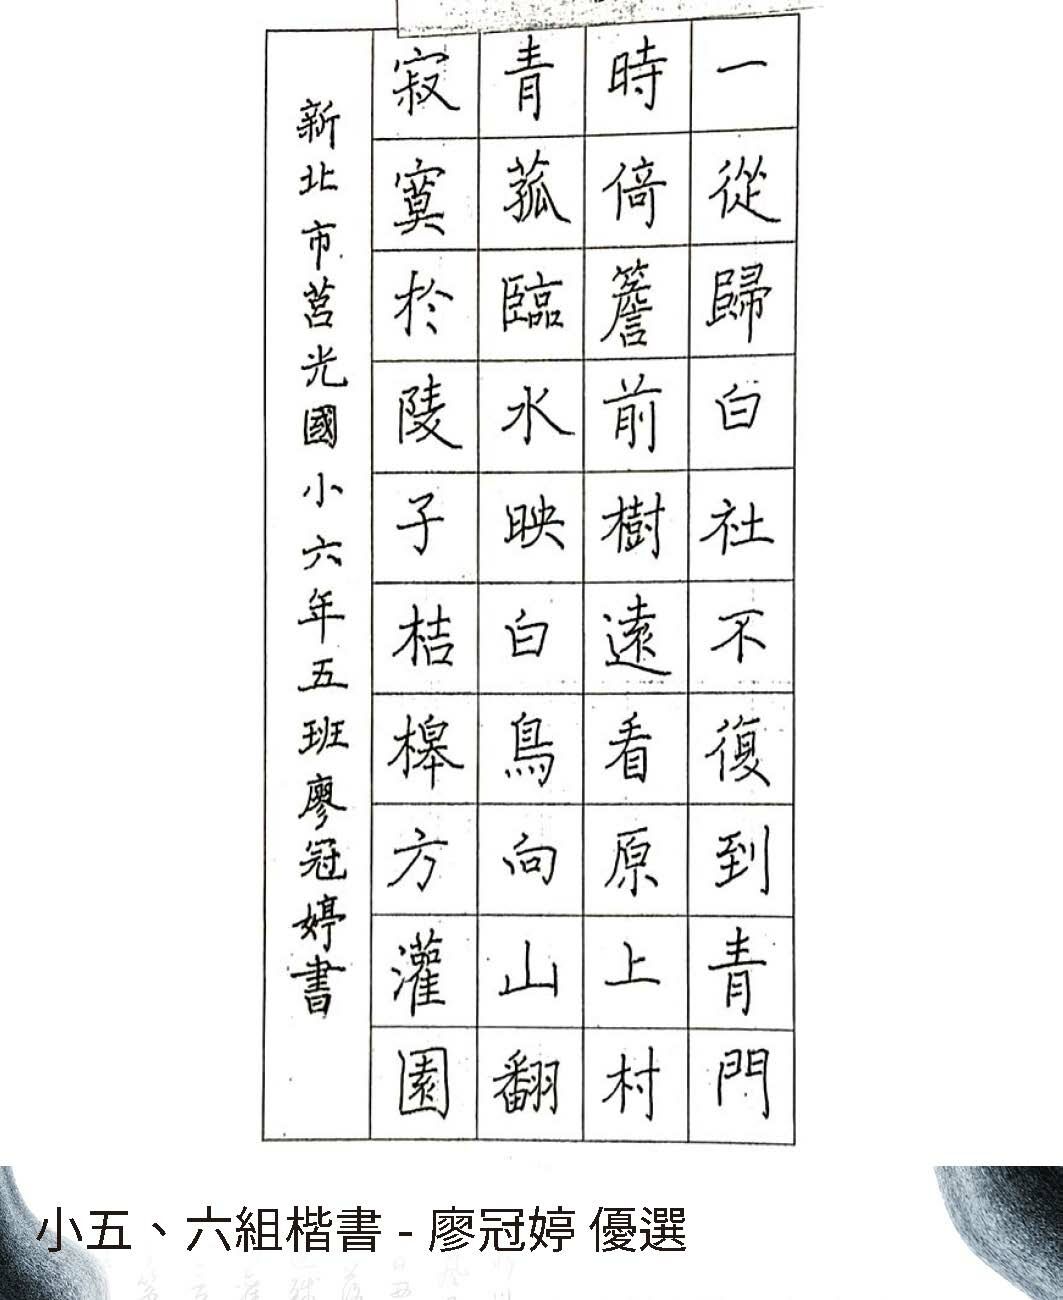 一從歸白社不復到青門
時倚簷前樹遠看原上村
青菰臨水映白鳥向山翻
寂寞於陵子桔槔方灌園
新北市莒光國小六年五班廖冠婷書
小五、六組楷書 - 廖冠婷 優選